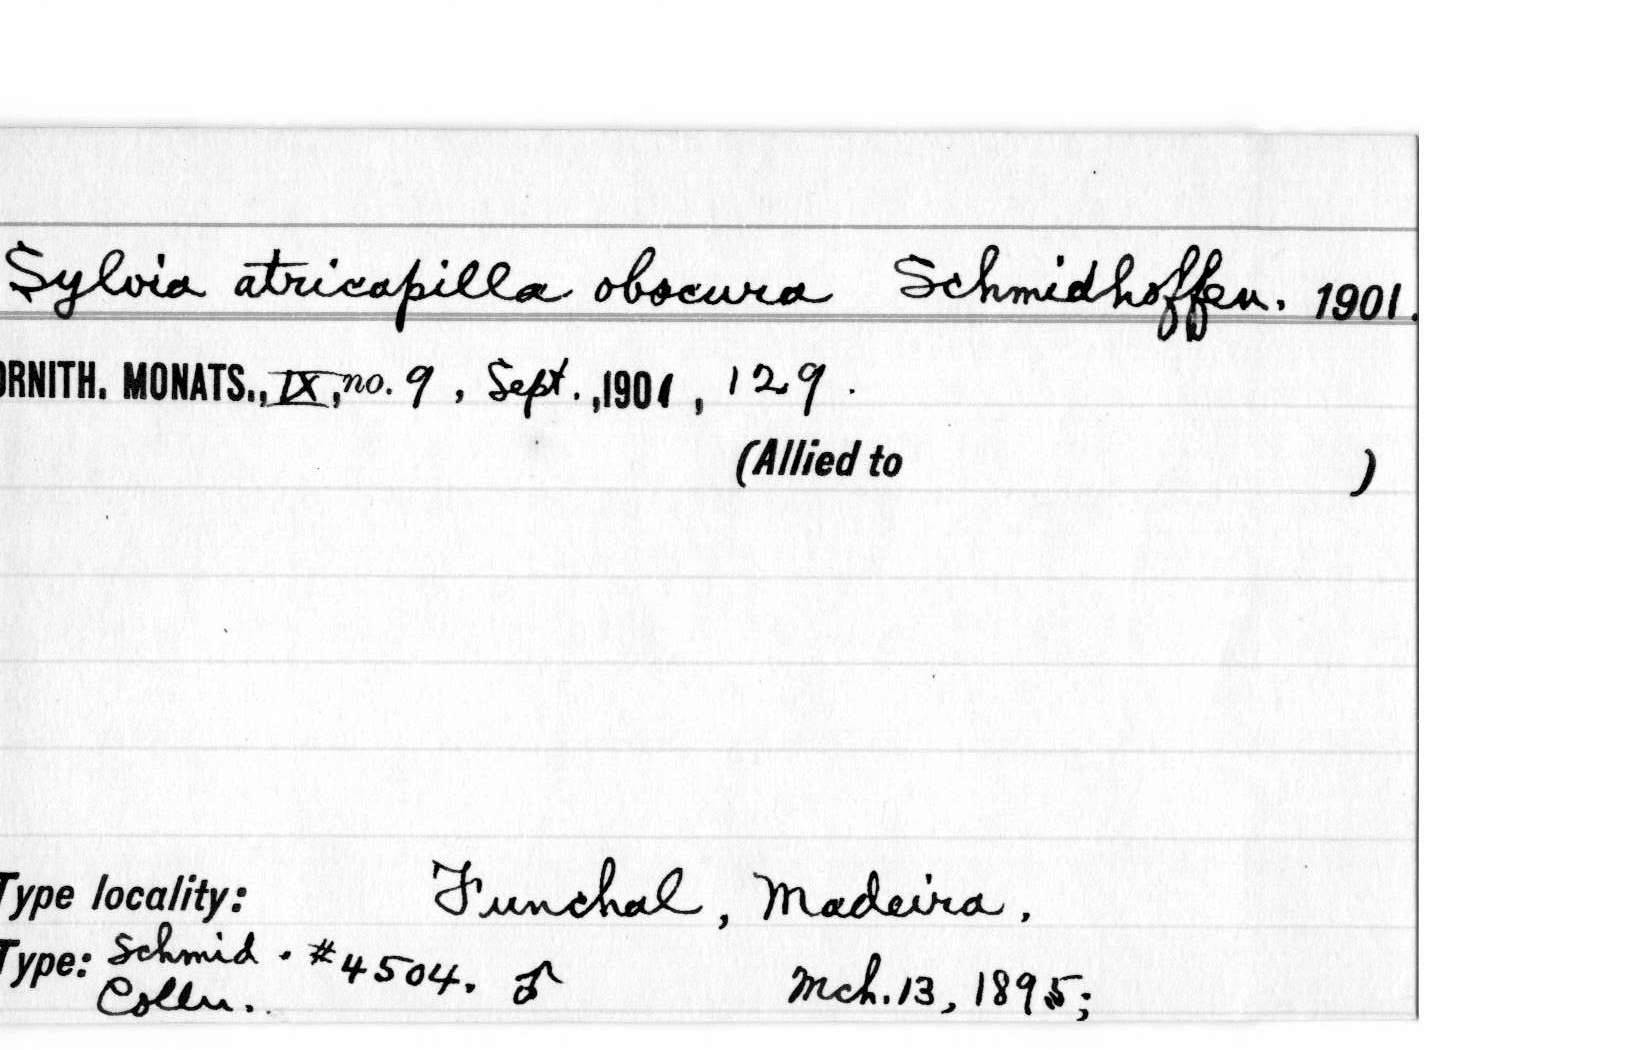 Sylvia atricapilla obscura Schmidhoffen. 1901.
ORNITH. MONATS., IX, no. 9, Sept., 1901, 129.
(Allied to )
Type locality: Funchal, Madeira.
Type: Schmid. #4504. ♂ Mch. 13, 1895;
Colln.